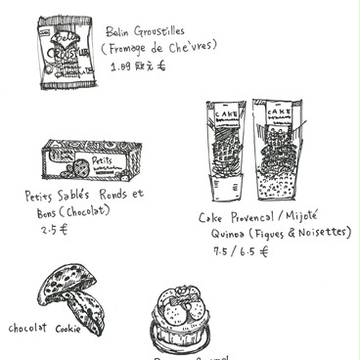 Belin
CROUST
Belin Groustilles
(Fromage de Che'vres)
1.09 欧元 €
Petits
Petits Sablés Ronds et
Bons (Chocolat)
2.5 €
CAKE
CAKE
Cake Provencal / Mijoté
Quinoa (Figues & Noisettes)
7.5 / 6.5 €
chocolat Cookie